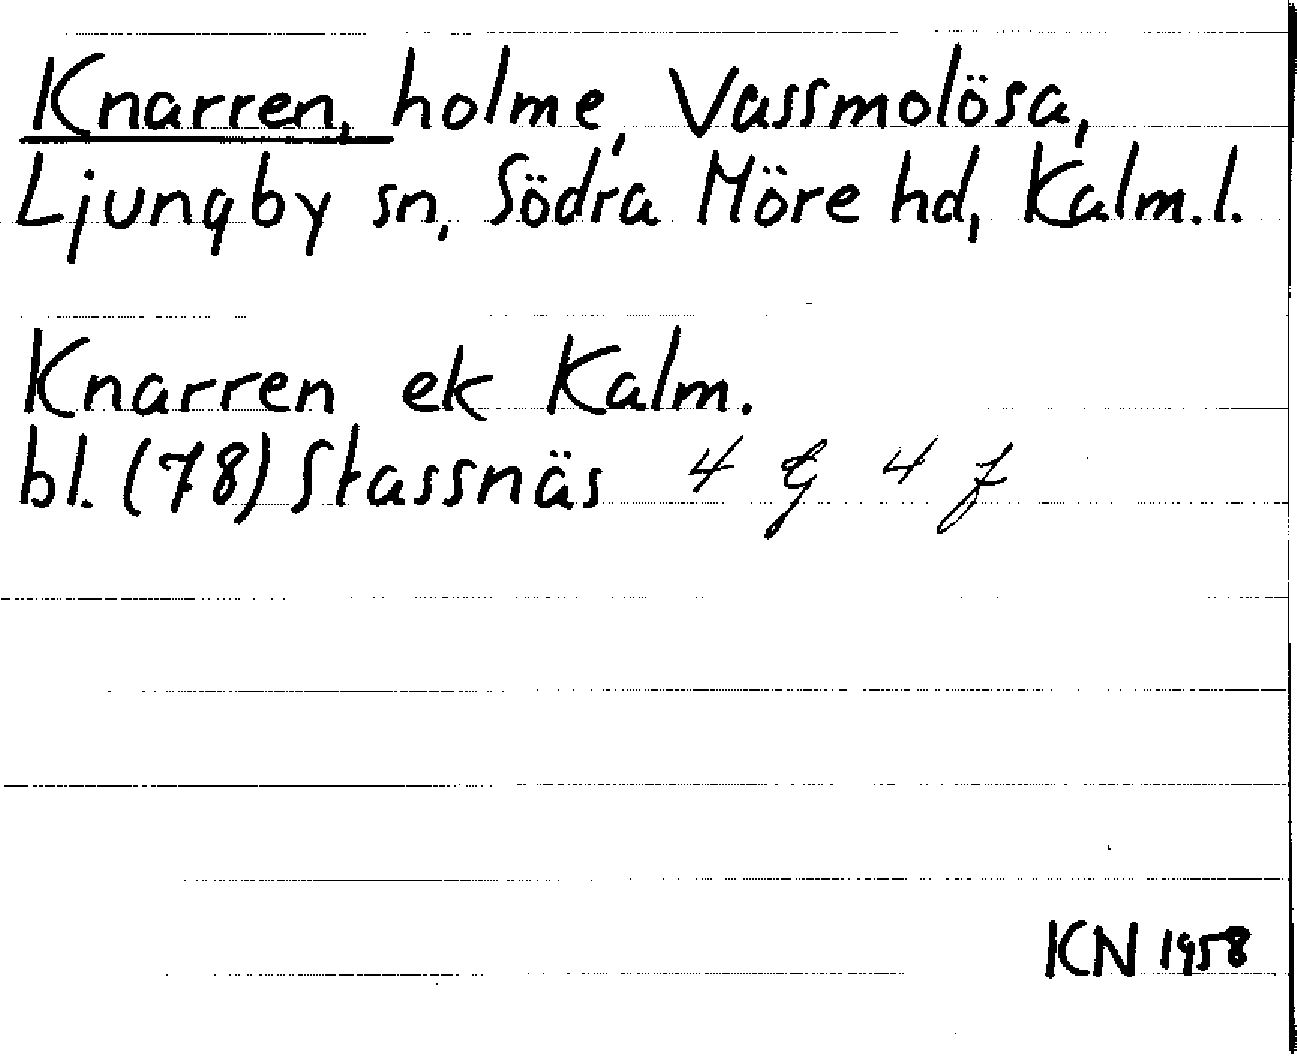 Knarren, holme, Vassmolösa,
Ljungby sn, Södra Möre hd, Kalm. l.
Knarren ek Kalm.
bl. (78) Stassnäs 4 G 4 f
KN 1958